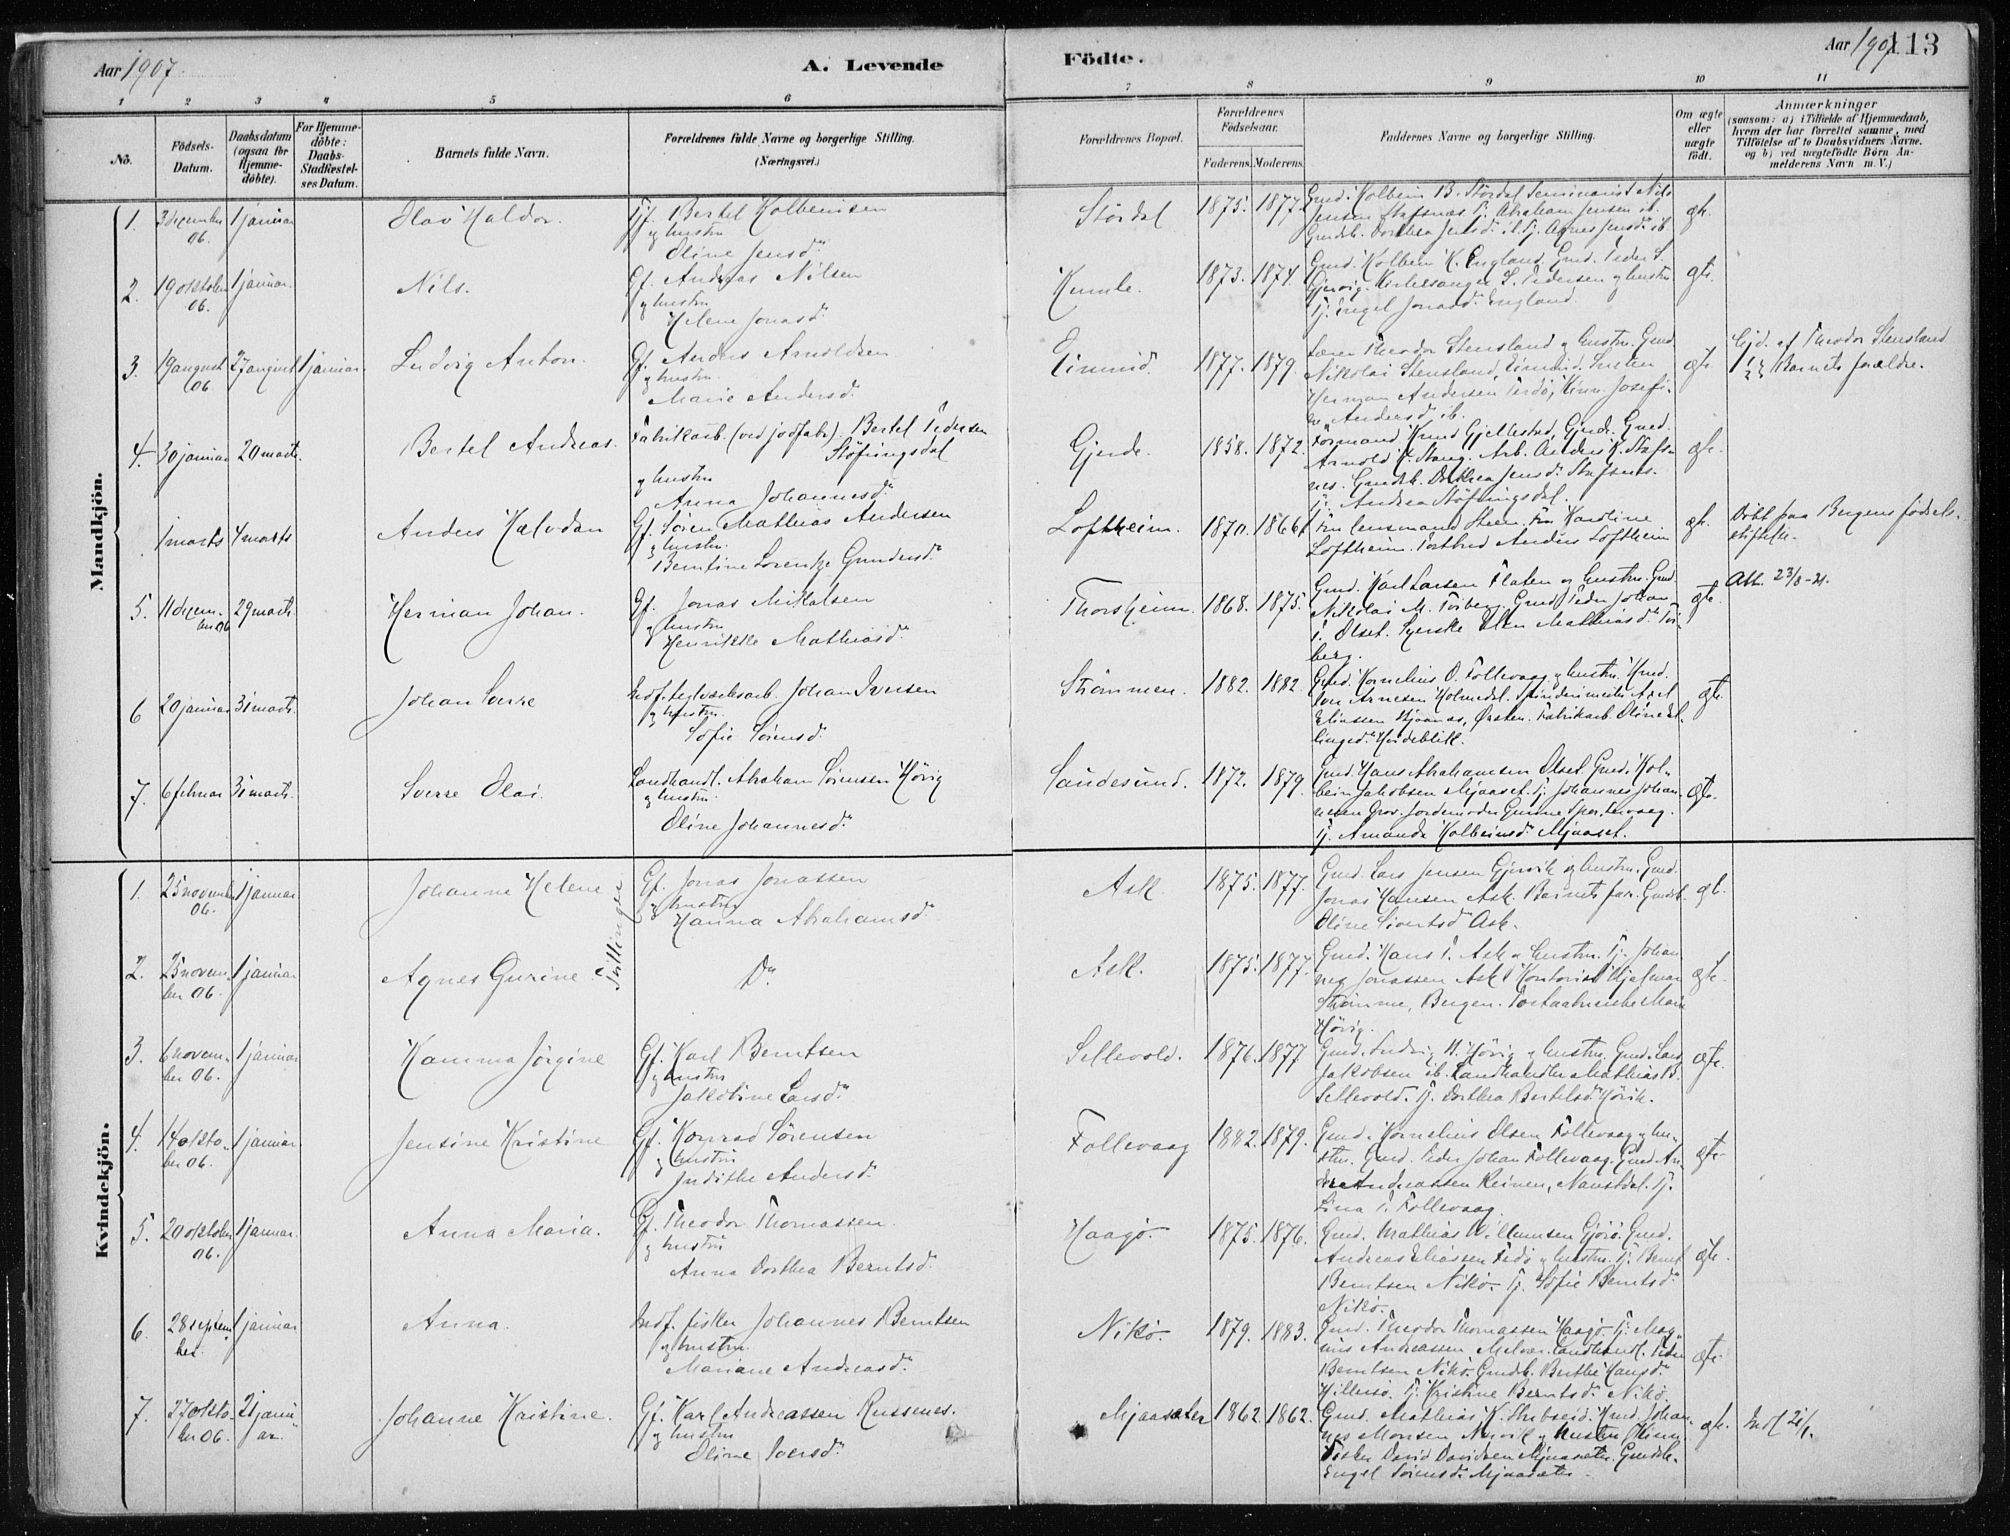 Aar 1907.
A. Levende
Födte.
Aar 1907
113
1 2 3 4 5 6 7 8 9 10 11
Nô.
Födsels-Datum.
Daabsdatum (ogsaa for Hjemmedöbte).
For Hjemmedöbte: Daabs-Stadfæstelses Datum.
Barnets fulde Navn.
Forældrenes fulde Navne og borgerlige Stilling. (Næringsvei.)
Forældrenes Bopæl.
Forældrenes Födselsaar.
Faderens. Moderens.
Faddernes Navne og borgerlige Stilling.
Om ægte eller uægte födt.
Anmærkninger (saasom: a) i Tilfælde af Hjemmedaab, hvem der har forrettet samme, med Tilföielse af to Daabsvidners Navne, og b) ved uægtefödte Börn Anmelderens Navn m. V.)
Mandkjön.
1. 3 december 06. 1 januar Olav Haldor. Gf. Bertel Kolbeinsen og hustru Oline Jensd. Stördal 1875. 1877. Gmd. Kolbein B. Stördal Seminarist Nils Jensen Stafsnæs. Tj. Abraham Jensen ib. Gmdsk. Dorthea Jensd. ib. Tj. Agnes Jensd. ib. gt.
2. 19 oktober 06. 1 januar. Nils. Gf. Andreas Nilsen og hustru Helene Jonasd. Kumle. 1873. 1874. Gmd. Kolbein K. England. Gmd. Peder S. Gjervig. Kirkesanger S. Pedersen og hustru Tj. Engel Jonasd. England. gt.
3. 19 august 06. 27 august 1 januar. Ludvig Anton. Gf. Anders Arnoldsen og hustru. Marie Andersd. Eimind. 1877. 1879. Lærer Theodor Stensland og hustru. Gmd. Nikolai Stensland, Eimind. Herman Andersen Andersd. ib. gt. Hjd. af Theodor Stensland Barnets forældre.
4. 30 januar 20 marts. Bertel Andreas. Fabrikarb. (ved jodfabr.) Bertel Pedersen Stöfringsdal og hustru Anna Johannesd. Gjerde. 1858. 1872. Formand Knud Gjellestad, Gjerde. Gmd. Arnold K. Stang. Arb. Anders K. Stafsnes. Gmdsk. Dorthea Jensd. Stafsnes. Tj. Andrea Stöfringsdal. gt.
1 marts 4 marts Anders Halvdan Gf. Sören Mathias Andersen og hustru. Berntine Lorentze Gundersd. Loftheim. 1870. 1866. Fru lensmand Steen. Fru Karoline Loftheim. Postbud Anders Loftheim gt. Döbt paa Bergens födselsstiftelse.
5. 11 december 06 29 marts. Herman Johan. Gf. Jonas Mikalsen og hustru Henrikke Mathiasd. Thorsheim. 1868. 1875. Gmd. Karl Larsen Flaten og hustru. Gmd. Nikolai M. Torberg. Gmd. Peder Johan T. Olset. Syerske Ellen Mathiasd. Torberg. gt. Att. 23/8-21.
6 20 januar 31 marts. Johan Sverre Indf. teglværksarb. Johan Iversen og hustru. Sofie Sörensd. Strömmen. 1882. 1882. Gmd. Kornelius O. Follevaag og hustru. Gmd. Arnesen Holmedal. Spinderimester Axel Eliassen Örsten. Fabrikarb. Hordeblik. gt.
7. 6 februar 31 marts. Sverre Olai. Landhandl. Abraham Sörensen Hörig og hustru. Oline Johannesd. Sandesund. 1872. 1879. Gmd. Hans Abrahamsen Olset. Gmd. Kolbein Jakobsen Mjaaset. Tj. Johannes Johannesen Grov. Jordemoder Tj. Amanda Kolbeinsd. Mjaaset. gt.
Kvindekjön.
1. 25 november 06. 1 januar. Johanne Helene Tvillinger Gf. Jonas Jonassen og hustru Hanna Abrahamsd. Ask 1875. 1877. Gmd. Lars Jensen Gjervik og hustru. Gmd. Jonas Hansen Ask. Barnets far. Gmdsk. Oline Sivertsd. Ask. gt.
2. 25 november 06. 1 januar Agnes Gurine. Do. Ask. 1875. 1877. Gmd. Hans P. Ask og hustru. Tj. Johannes Jonassen Ask. Kontorist Hjelmar Strömme, Bergen. Hörig. gt.
3. 6 november 06. 1 januar Hanna Jörgine Gf. Karl Berntsen og hustru Jakobine Larsd. Sellevold. 1876. 1877 Gmd. Ludvig B. Hörig og hustru. Gmd. Lars Jakobsen ib. Landhandler Mathias B. Sellevold. Tj. Dorthea Bertelsd. Hörik. gt.
4. 14 oktober 06. 1 januar Jensine Kristine Gf. Konrad Sörensen og hustru Judithe Andersd. Follevaag 1882. 1879. Gmd. Kornelius Olsen Follevaag og hustru. Gmd. Peder Johan Follevaag. Gmd. Andreassen Reinen, Naustdal. Tj. Lina P. Follevaag. gt.
5. 20 oktober 06. 1 januar. Anna Maria. Gf. Theodor Thomassen. og hustru Anna Dorthea Berntsd. Haagö. 1875. 1876. Gmd. Mathias Willumsen Gjörö. Gmd. Andreas Eliassen Fedö og hustru. Tj. Bernt Berntsen Nikö. Tj. Sofie Berntsd. Nikö. gt.
6. 28 september. 1 januar Anna. Indf. fisker Johannes Berntsen og hustru. Mariane Andreasd. Nikö. 1879. 1883. Gmd. Theodor Thomassen Haagö. Tj. Magnus Andreassen Melvær. Landhandl. Peder Berntsen Nikö. Gmdsk. Berthe Hansd. Hillersö. Tj. Kristine Berntsd. Nikö. gt.
7. 27 oktober 06. 21 januar. Johanne Kristine. Gf. Karl Andreassen Russenes. og hustru Oline Iversd. Mjaasæter 1862. 1862. Gmd. Mathias K. Stubseid. Gmd. Johannes Monsen og hustru Fisker David Davidsen Mjaasæter. Gmdsk. Engel Sörensd. Mjaasæter. gt. Indf. 21/1.